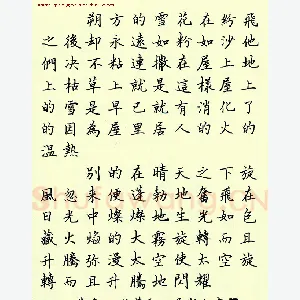 朔方的雪花在粉飛
之後却永遠如粉如沙他
們决不粘連撒在屋上地
上枯草上就是這樣屋上
的雪是早已就有消化了
的因為屋里居人的火的
温熱
别的在晴天之下旋
風忽來便蓬勃地奮飛在
日光中燦燦地生光如包
藏火焰的大霧旋轉而且
升騰弥漫太空使太空旋
轉而且升騰地閃耀
Shufawang.CN